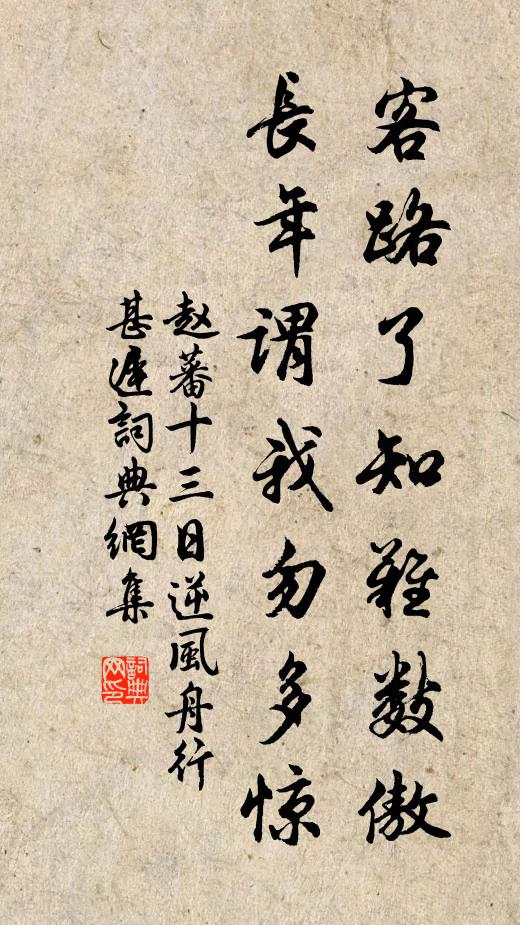 客路了知難數傲
長年謂我勿多惊
赵蕃十三日逆風舟行
甚遲詞典網集
詞典
网印